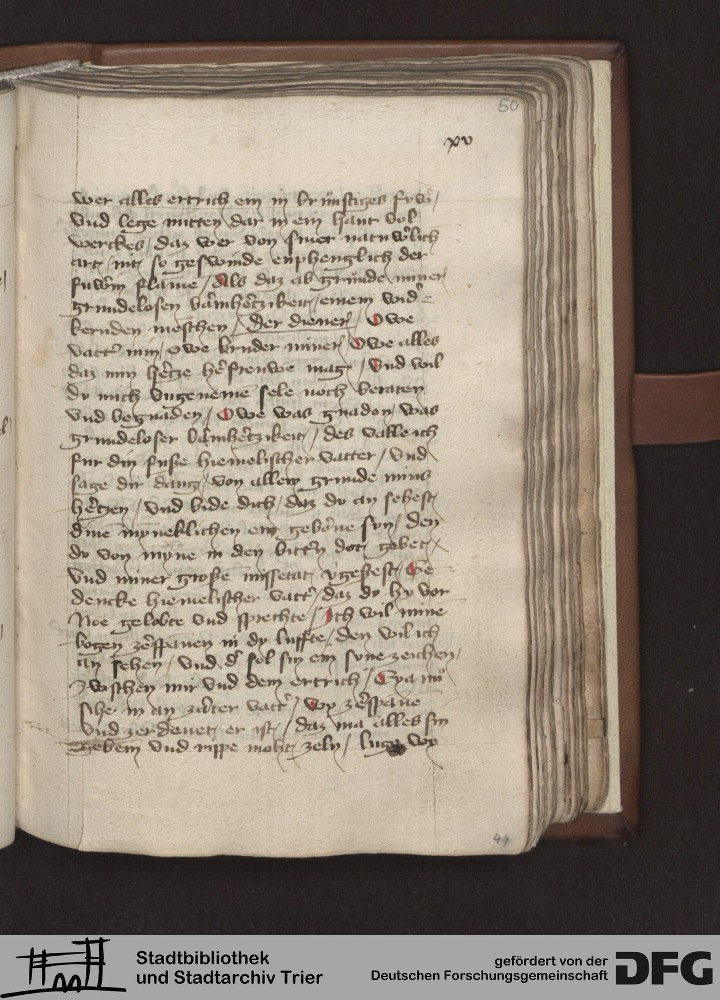 50
xv
wer alles ertrich ein in brünstiges fvͦr /
vnd lege mitten dar in ein hant vol
werckes / daz wer von siner natuͤrlich
art / nit so geswinde enphenglich der
fuwrin flame / Als daz ab grunde miner
grundelosen barmhertzikeit / einem wid
kernden meschen / Der diener / Owe
vatter min / owe bruder miner / Owe alles
daz min hertze herfreuwe mag / Vnd wil
du mich vngeneme sele noch beraten
vnd begnaden / Owe was gnaden / was
grundeloser barmhertzikeit / des valle ich
fur din fuße hiemelischer vatter / vnd
sage dir dang / von allem grunde mins
hertzen / vnd bide dich / daz du an sehest
dine mynneklichen ein geborne son / den
du von myne in den bittern dot gebet
vnd miner große missetat vgeßest / Ge
dencke hiemelischer vatter / daz du hy vor
Noe gelobte vnd sprechte / Ich wil mine
bogen zerspanen in dy luffte / den wil ich
an sehen / vnd der sol sin ein sone zeichen /
zwischen mir vnd dem ertrich / Eya nu
sihe in an zarter vatter / Wy zerspane
vnd zerdenet er ist / daz ma alles sin
gebein vnd rippe moht zeln / lug wy
44
Stadtbibliothek
und Stadtarchiv Trier
gefördert von der
Deutschen Forschungsgemeinschaft
DFG